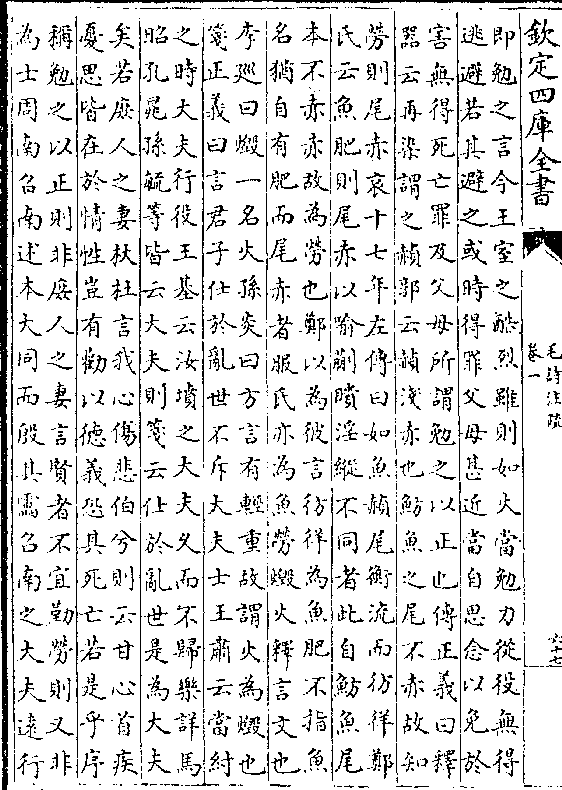 欽定四庫全書
毛詩注疏
卷一
六十七
即勉之言今王室之酷烈雖則如火當勉力從役無得
逃避若其避之或時得罪父母甚近當自思念以免於
害無得死亡罪及父母所謂勉之以正也傳正義曰釋
器云再染謂之赬郭云赬淺赤也魴魚之尾不赤故知
勞則尾赤哀十七年左傳曰如魚赬尾衡流而彷徉鄭
氏云魚肥則尾赤以喻蒯瞶淫縱不同者此自魴魚尾
本不赤赤故為勞也鄭以為彼言彷徉為魚肥不指魚
名猶自有肥而尾赤者服氏亦為魚勞燬火釋言文也
李廵曰燬一名火孫炎曰方言有輕重故謂火為燬也
箋正義曰言君子仕於亂世不斥大夫士王肅云當紂
之時大夫行役王基云汝墳之大夫久而不歸樂詳馬
昭孔晁孫毓等皆云大夫則箋云仕於亂世是為大夫
矣若庶人之妻杕杜言我心傷悲伯兮則云甘心首疾
憂思皆在於情性豈有勸以德義恐其死亡若是乎序
稱勉之以正則非庶人之妻言賢者不宜勤勞則又非
為士周南召南述本大同而殷其靁召南之大夫遠行